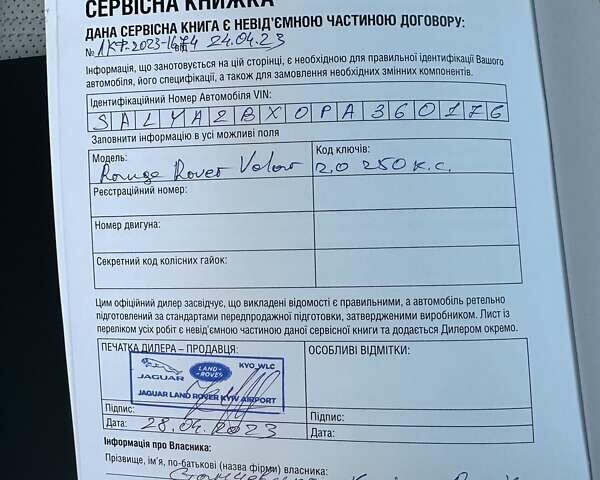 СЕРВІСНА КНИЖКА
ДАНА СЕРВІСНА КНИГА Є НЕВІД'ЄМНОЮ ЧАСТИНОЮ ДОГОВОРУ:
№ 1КР-2023-1474 від 24.04.23
Інформація, що занотовується на цій сторінці, є необхідною для правильної ідентифікації Вашого
автомобіля, його специфікації, а також для замовлення необхідних змінних компонентів.
Ідентифікаційний Номер Автомобіля VIN:
SALYA2BX0PA360176
Заповнити інформацію в усі можливі поля
Модель: Код ключів:
Range Rover Velar 2,0 250 к.с.
Реєстраційний номер:
Номер двигуна:
Секретний код колісних гайок:
Цим офіційний дилер засвідчує, що викладені відомості є правильними, а автомобіль ретельно
підготовлений за стандартами передпродажної підготовки, затвердженими виробником. Лист із
переліком усіх робіт є невід'ємною частиною даної сервісної книги та додається Дилером окремо.
ПЕЧАТКА ДИЛЕРА – ПРОДАВЦЯ: ОСОБЛИВІ ВІДМІТКИ:
JAGUAR LAND ROVER KYO_WLC
JAGUAR LAND ROVER KYIV AIRPORT
Підпис: Підпис:
Дата: 28.04.2023 Дата:
Інформація про Власника:
Прізвище, ім'я, по-батькові (назва фірми) власника: